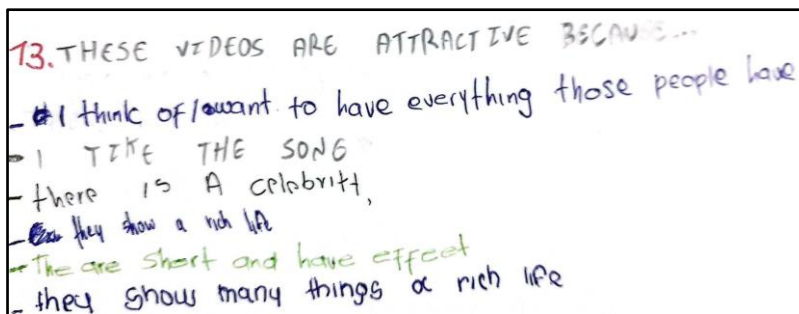 13. THESE VIDEOS ARE ATTRACTIVE BECAUSE...
- I think of / want to have everything those people have
- I TIKE THE SONG
- there is A celebritt,
- they show a rich life
- The are short and have effect
- they show many things α rich life